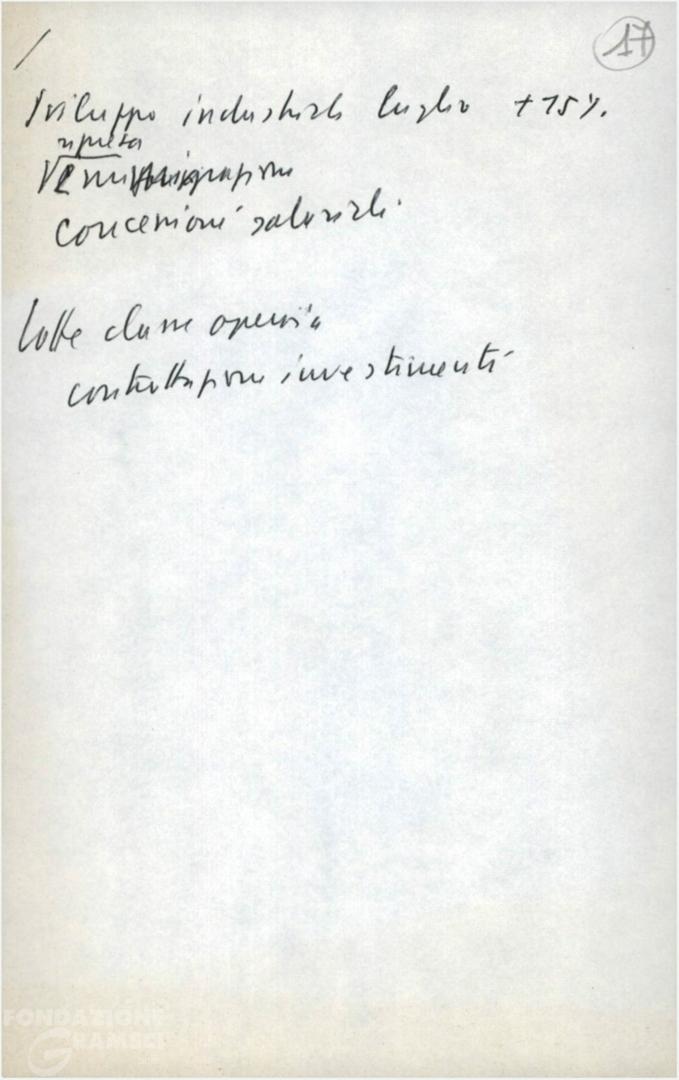 17
Sviluppo industriale luglio +15%.
ripresa
emigrazione
concessioni salariali.
lotte classe operaia
contrattazione investimenti
FONDAZIONE
GRAMSCI